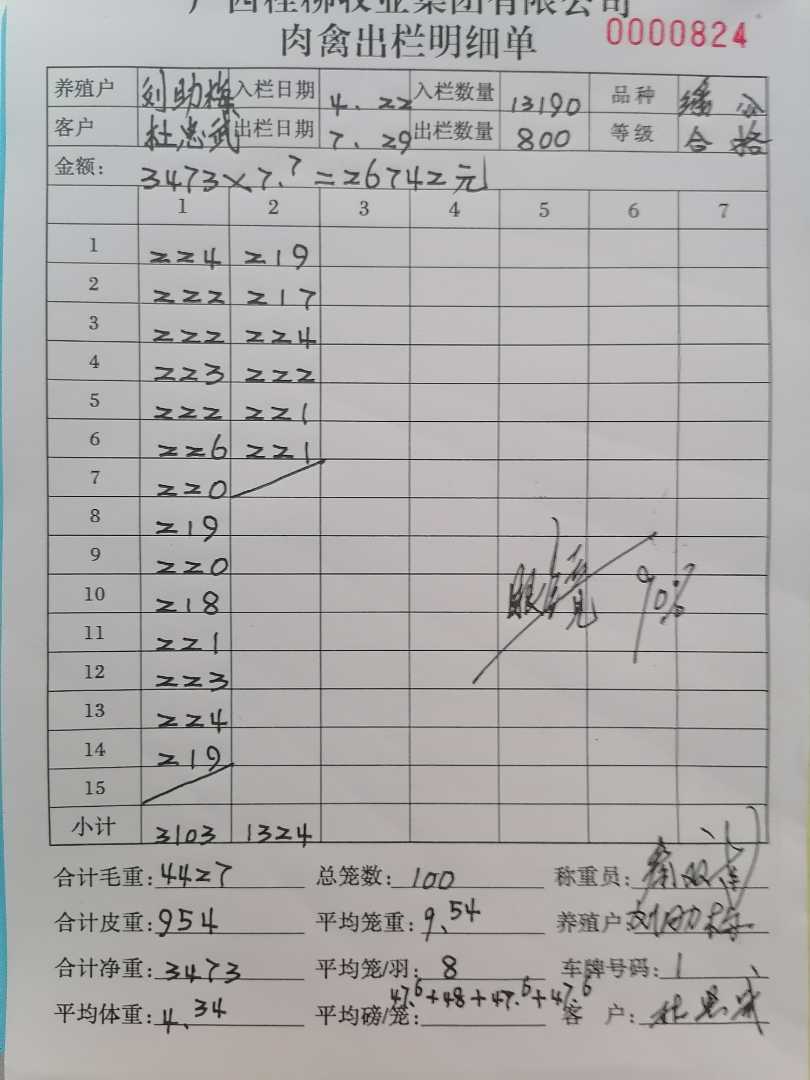 广西桂柳牧业集团有限公司
肉禽出栏明细单 0000824
养殖户 刘助梅 入栏日期 4.22 入栏数量 13190 品种
客户 杜忠武 出栏日期 7.29 出栏数量 800 等级 合格
金额: 3473×7.7=26742元
1 2 3 4 5 6 7
1 224 219
2 222 217
3 222 224
4 223 222
5 222 221
6 226 221
7 220
8 219
9 220
10 218
11 221
12 223
13 224
14 219
15
眼镜 90%
小计 3103 1324
合计毛重: 4427 总笼数: 100 称重员:
合计皮重: 954 平均笼重: 9.54 养殖户: 刘助梅
合计净重: 3473 平均笼/羽: 8 车牌号码: 1
平均体重: 4.34 平均磅/笼: 47.6+48+47.6+47.6 客户: 杜忠武